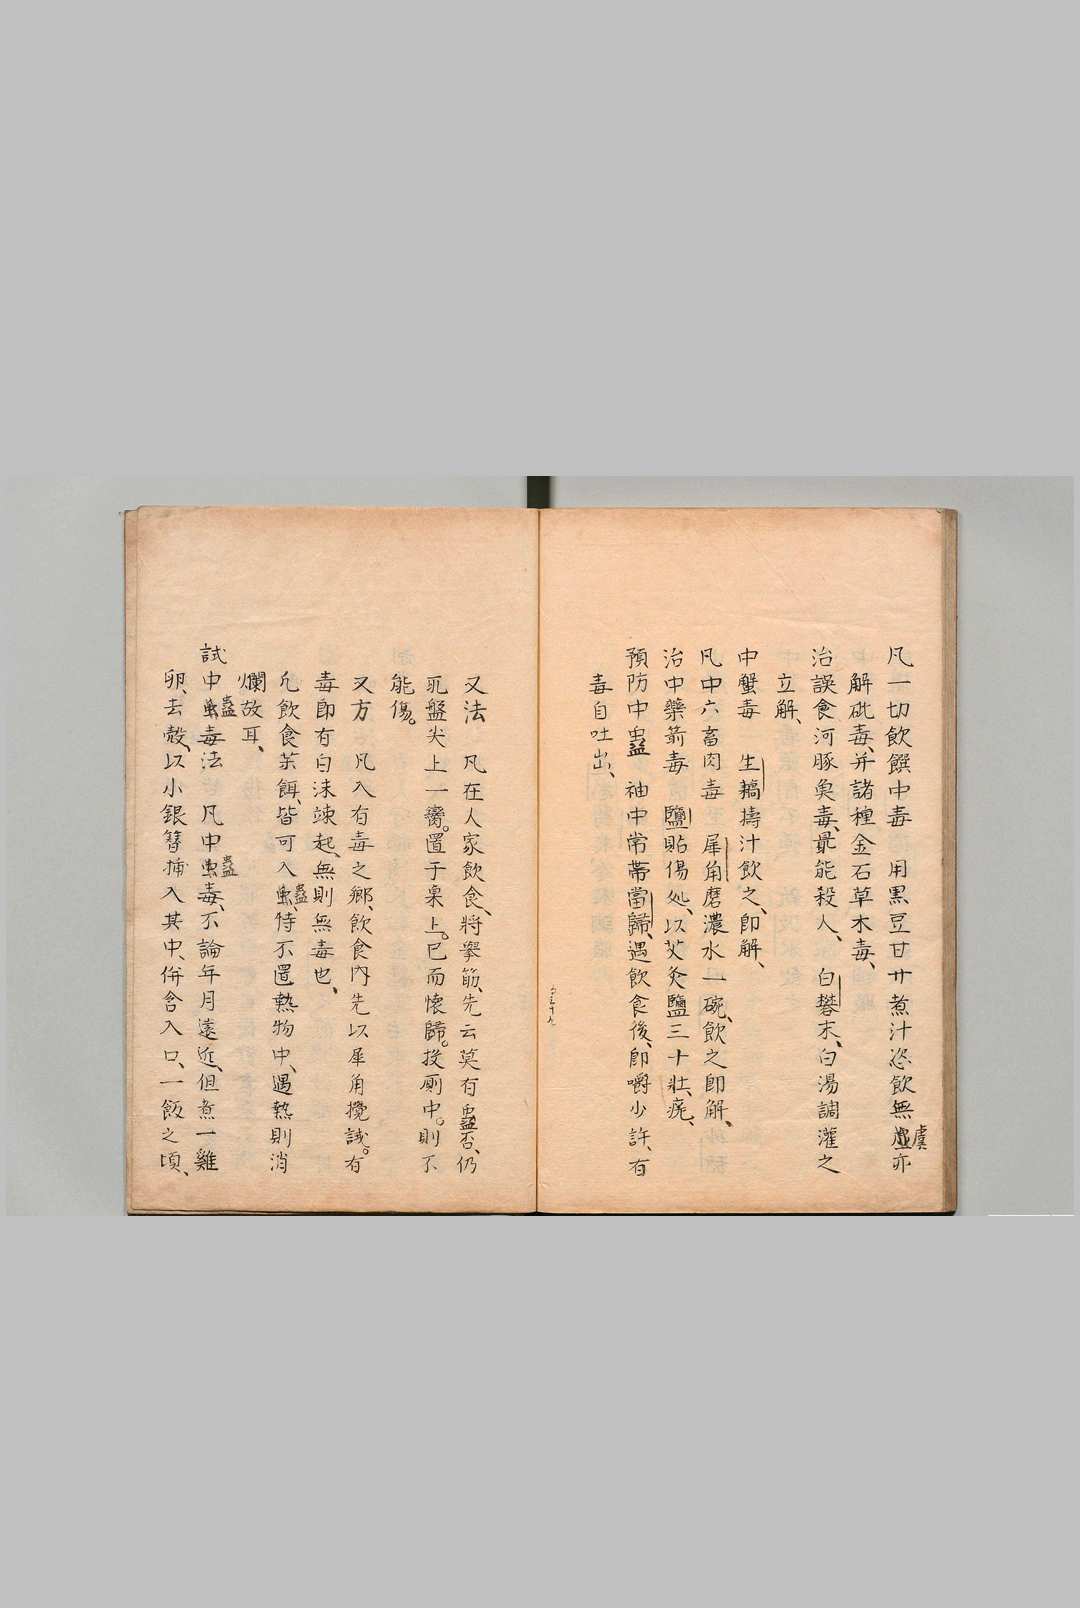 凡一切飲饌中毒 用黒豆甘艹煮汁恣飲無虞亦
解砒毒、并諸種金石草木毒、
治誤食河豚奐毒、最能殺人、 白礬末、白湯調灌之
立解、
中蟹毒 生藕擣汁飲之、即解、
凡中六畜肉毒 犀角磨濃水一碗、飲之即解、
治中藥箭毒 鹽貼傷処、以艾灸鹽三十壯、痊、
預防中蠱 袖中常帯當歸、遇飲食後、即嚼少許、有
毒自吐出、
又法 凡在人家飲食、將擧筋、先云莫有蠱否、仍
于桌上。已而懷歸。投厠中。則不
能傷。
又方 凡入有毒之鄉、飲食內先以犀角攪試。有
毒即有白沫竦起、無則無毒也、
凡飲食茶餌、皆可入蠱、恃不置熱物中、遇熱則消
爛故耳、
試中蠱毒法 凡中蠱毒、不論年月遠近、但煮一雞
卵、去殻、以小銀簪插入其中、併含入口、一飯之頃、